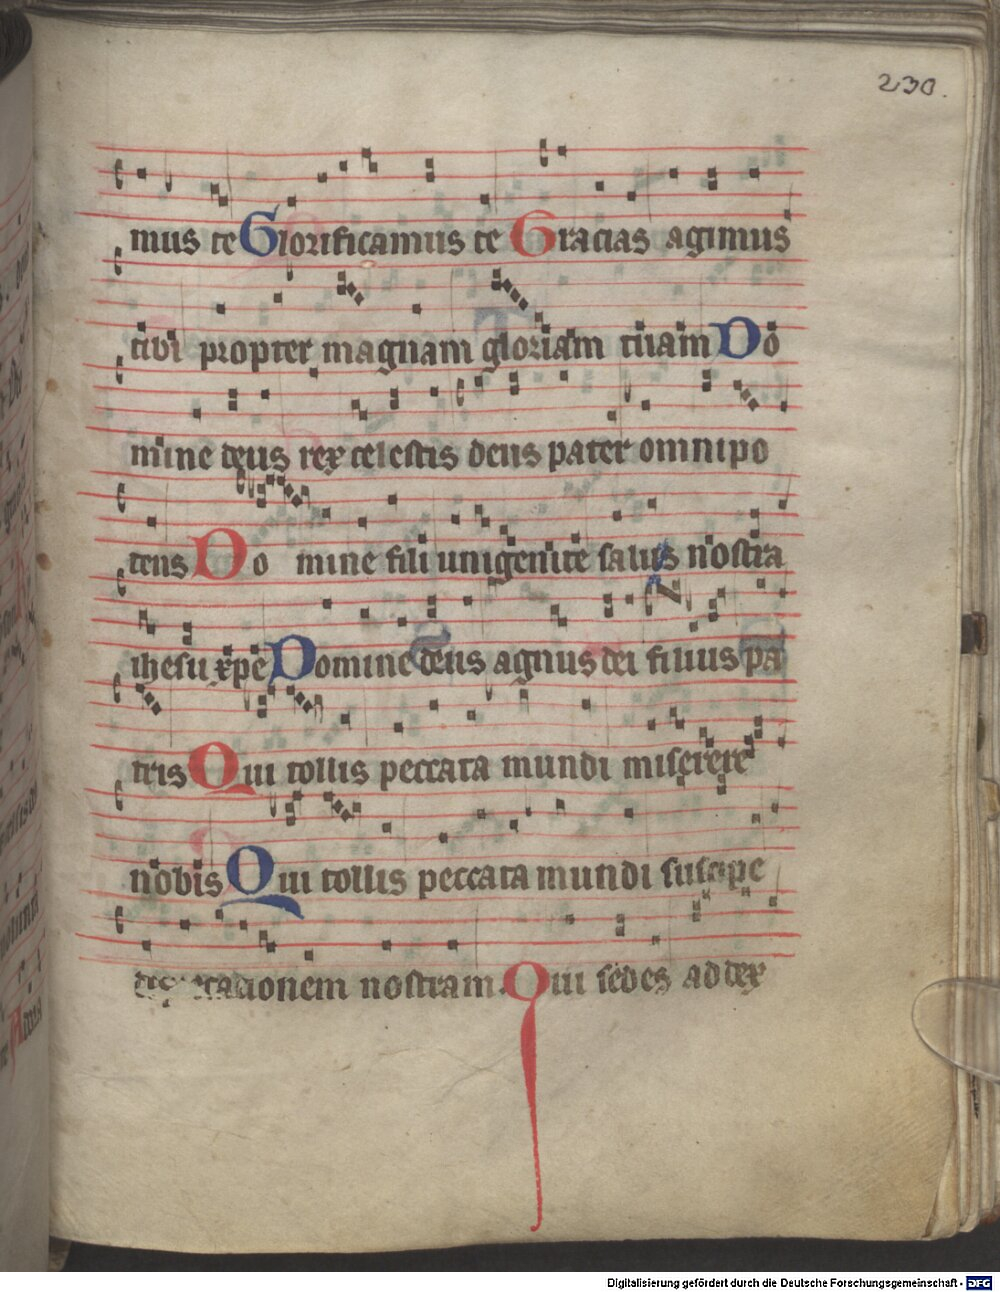 230.
mus te Glorificamus te Gracias agimus
tibi propter magnam gloriam tuam Do
mine deus rex celestis deus pater omnipo
tens Do mine fili unigenite salus nostra
ihesu xpe Domine deus agnus dei filius pa
tris Qui tollis peccata mundi miserere
nobis Qui tollis peccata mundi suscipe
nostram. Qui sedes ad dex
Digitalisierung gefördert durch die Deutsche Forschungsgemeinschaft - DFG